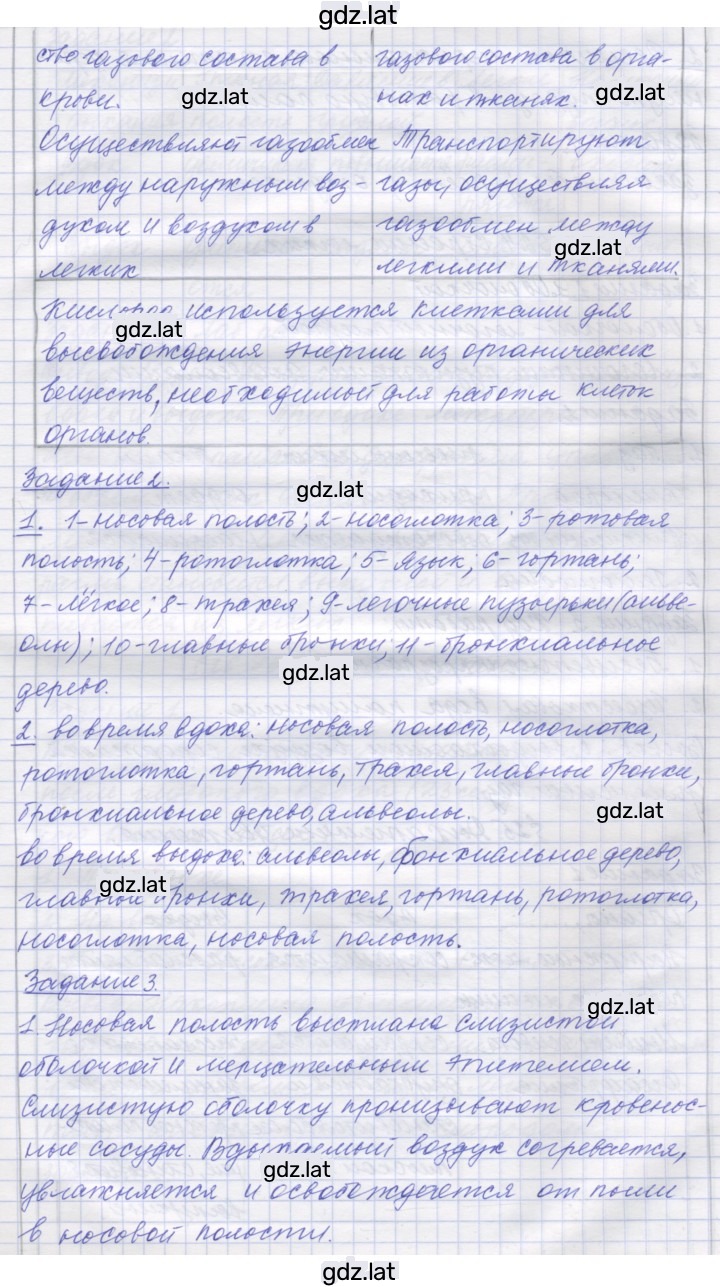 gdz.lat
ство газового состава в газового состава в орга-
крови. gdz.lat нах и тканях. gdz.lat
Осуществляют газообмен Транспортируют
между наружным воз- газы, осуществляя
духом и воздухом в газообмен между
gdz.lat
легких легкими и тканями.
используется клетками для
gdz.lat
высвобождения энергии из органических
веществ, необходимой для работы клеток
органов.
Задание 2.
gdz.lat
1. 1-носовая полость; 2-носоглотка; 3-ротовая
полость; 4-ротоглотка; 5-язык; 6-гортань;
7-лёгкое; 8-трахея; 9-легочные пузырьки (альве-
олы); 10-главные бронхи; 11-бронхиальное
gdz.lat
дерево.
2. во время вдоха: носовая полость, носоглотка,
ротоглотка, гортань, трахея, главные бронхи,
бронхиальное дерево, альвеолы.
gdz.lat
во время выдоха: альвеолы, бронхиальное дерево,
gdz.lat
бронхи, трахея, гортань, ротоглотка,
носоглотка, носовая полость.
Задание 3.
gdz.lat
1 Носовая полость выстлана слизистой
оболочкой и мерцательным эпителием.
Слизистую оболочку пронизывают кровенос-
ные сосуды. Вдыхаемый воздух согревается,
gdz.lat
увлажняется и освобождается от пыли
в носовой полости.
gdz.lat